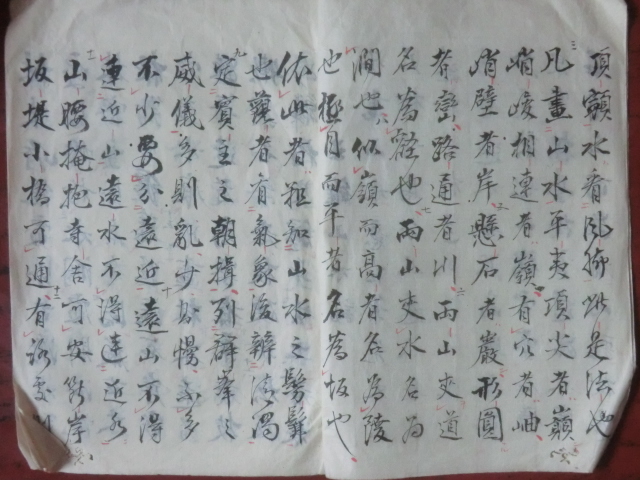 頂水看風腳此是法也
凡畫山水平夷頂尖者巔
峭峻相連者嶺有穴者岫
峭壁者岸懸石者巖形圓
者巒路通者川兩山夾道
名為壑也兩山夾水名為
澗也似嶺而高者名為陵
也極目而平者名為坂也
依此者粗知山水之髣髴
也觀者看氣象後辨清濁
定賓主之朝揖列群峯之
威儀多則亂少則慢不多
不少要分遠近遠山不得
連近山遠水不得連近水
山腰掩抱寺舍可安斷岸
坂堤小橋可通有路處則